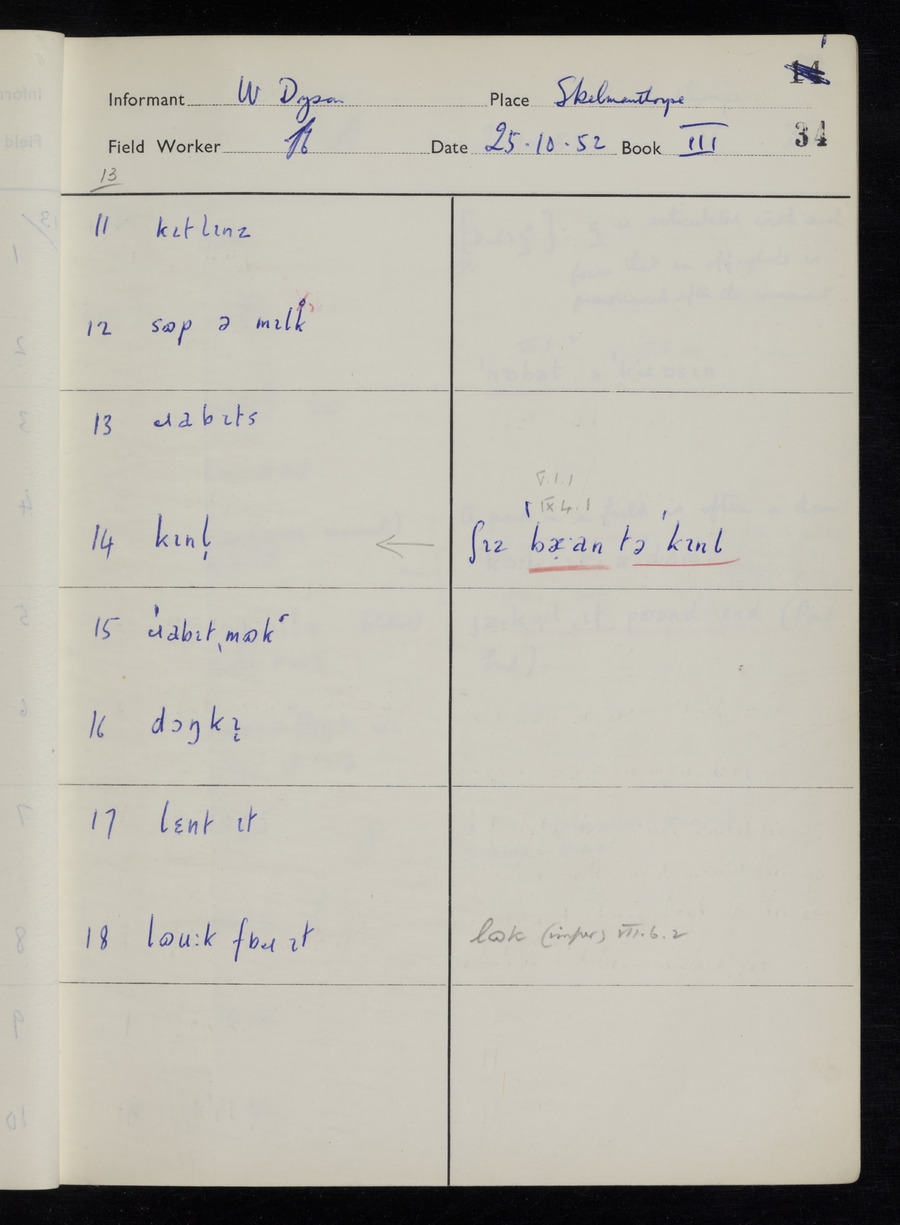 Informant W Dyson Place Skelmanthorpe
Field Worker Date 25.10.52 Book III 34
13
11 kɪtlɪnz
12 sɷp ə mɪlk
13 ɹabɪts
14 kɪnl̩ ← ʃɪz bæ̣·ən tə ˈkɪnl
V.1.1
IX 4.1
15 ˈɹabɪtˌmɷkʻ
16 dɔŋkɪ̞
17 lɛnt ɪt
18 lɷu:k fɒɹ ɪt lɷk (imper) VIII.6.2